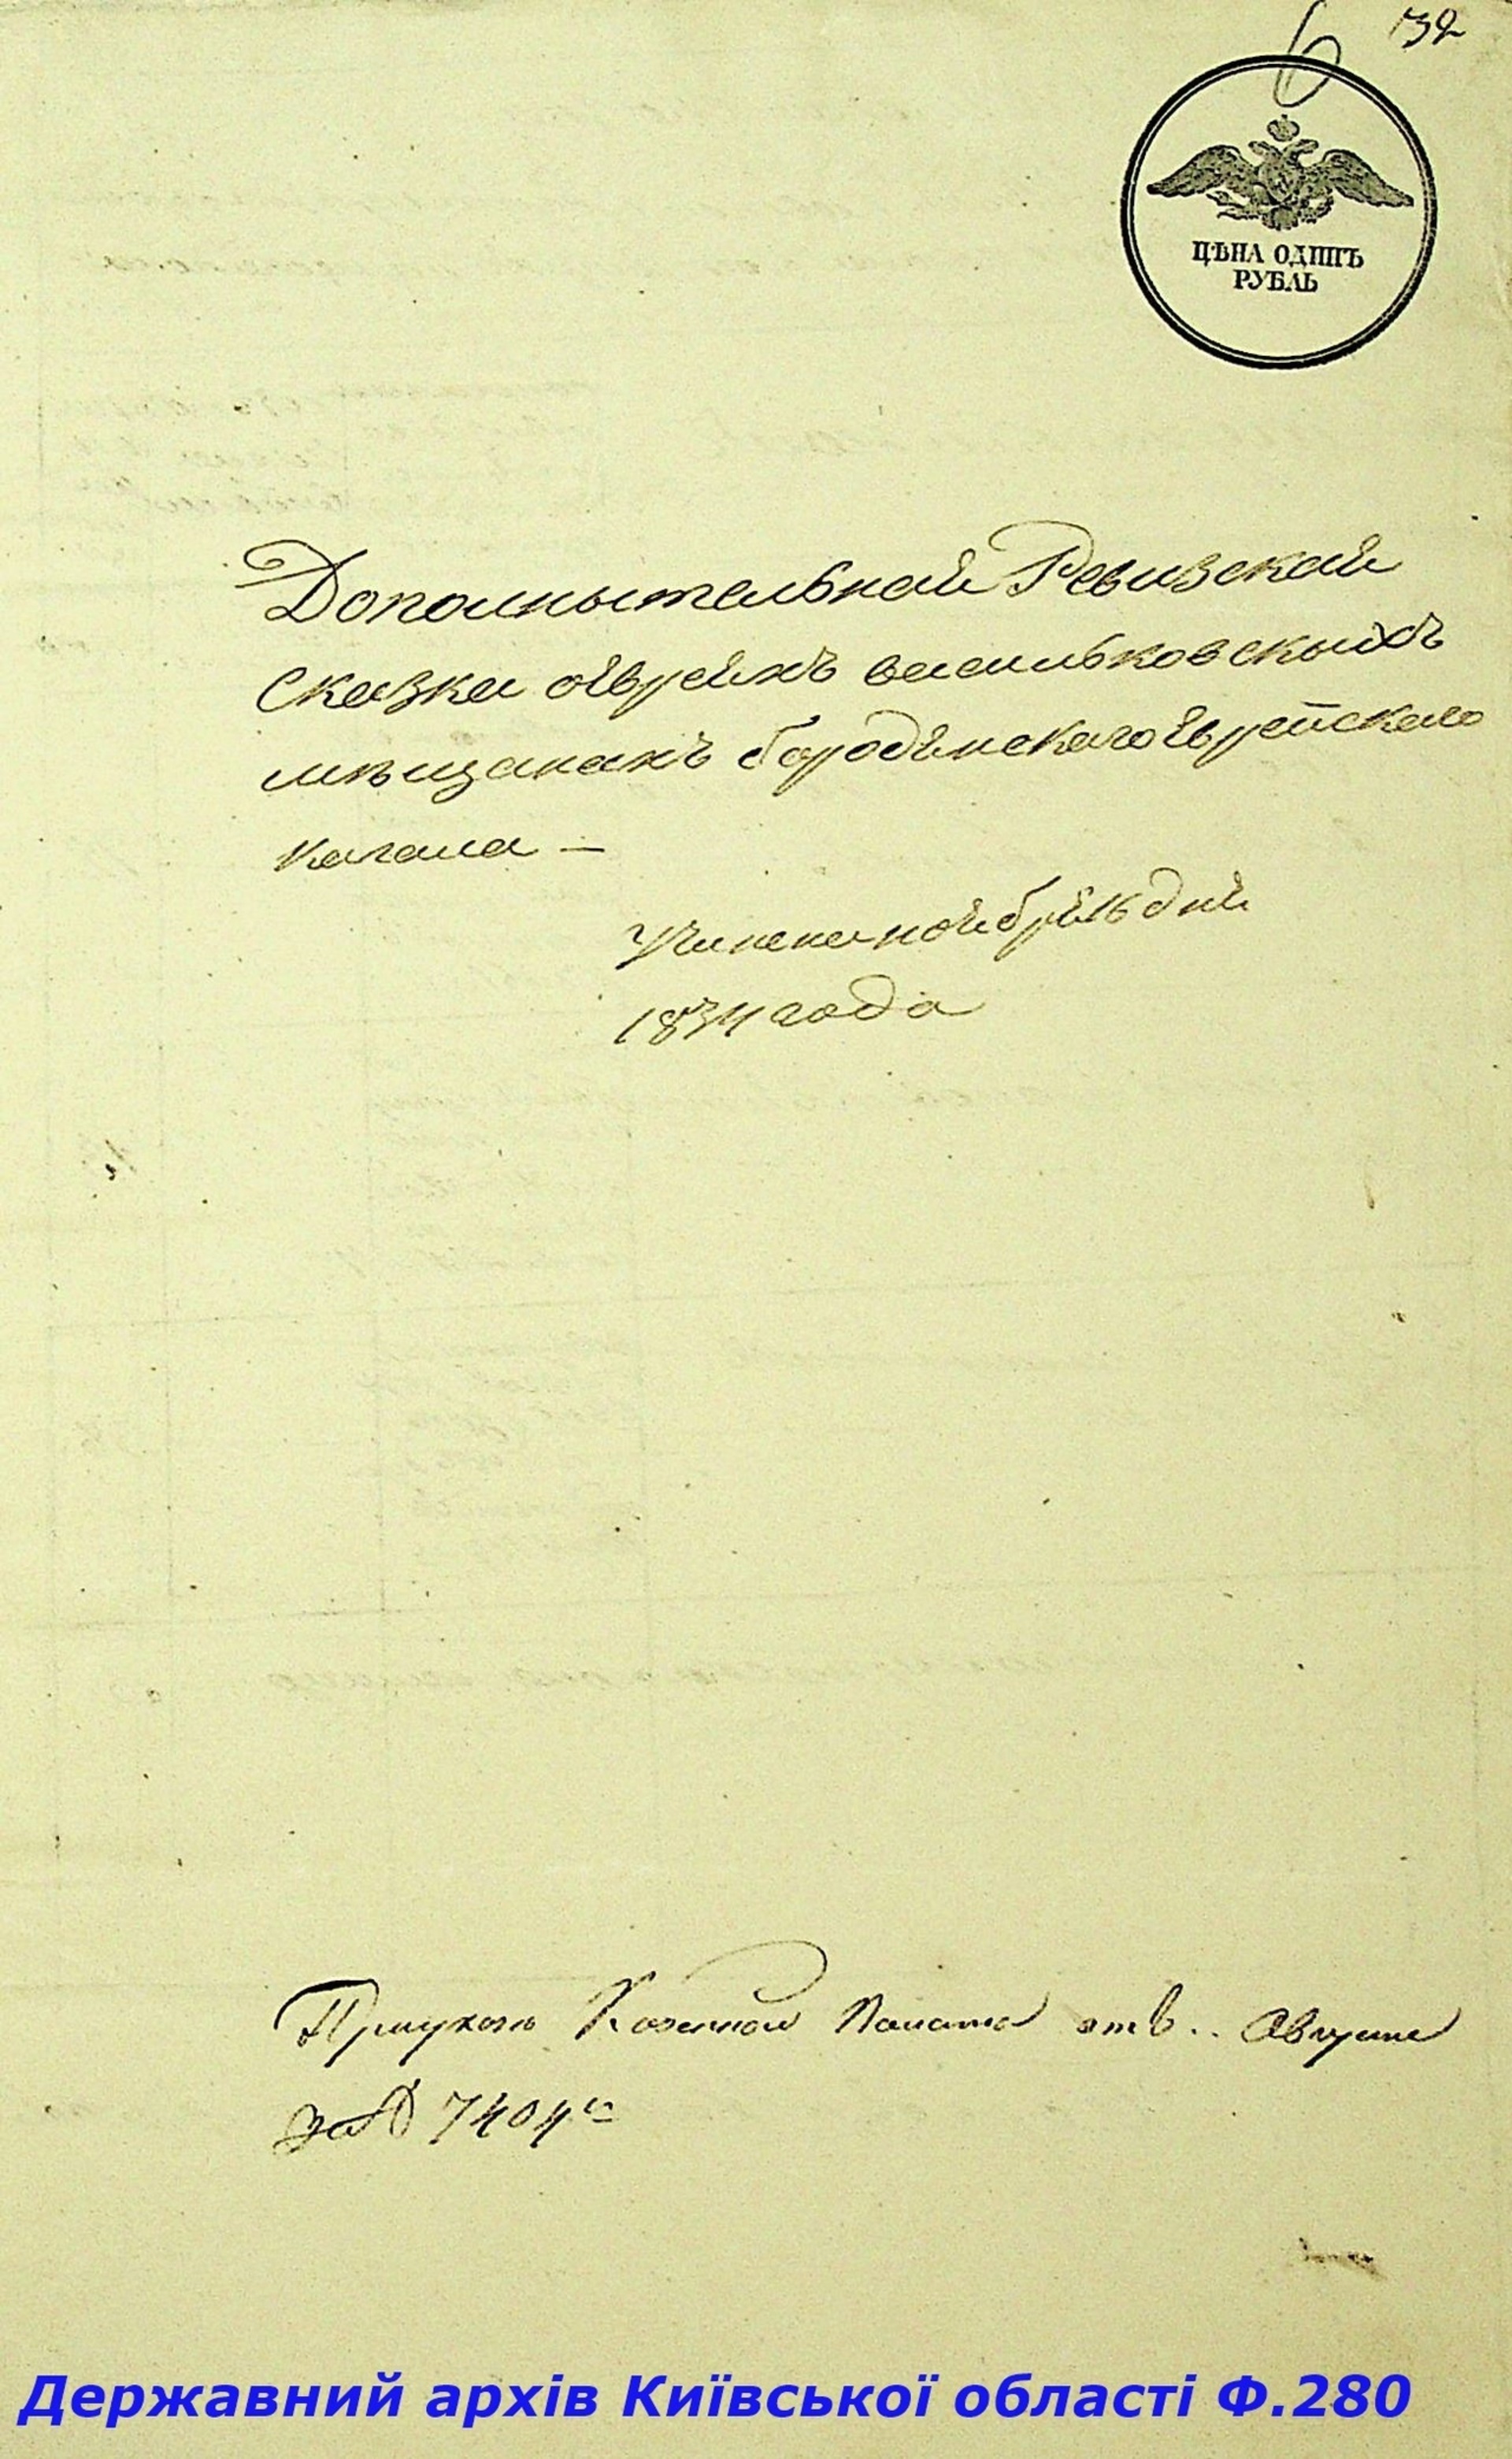 6 32
ЦѢНА ОДИНЪ
РУБЛЬ
Дополнытельной Ревизской
Сказки оѣвреяхъ васильковскыихъ
мѣщанахъ бородянскаго ѣврейскаго
Кагала —
Учинена ноября 16 дня
1834 года
При указѣ Казенной Палаты отъ .. Августа
за № 7404
Державний архів Київської області Ф.280